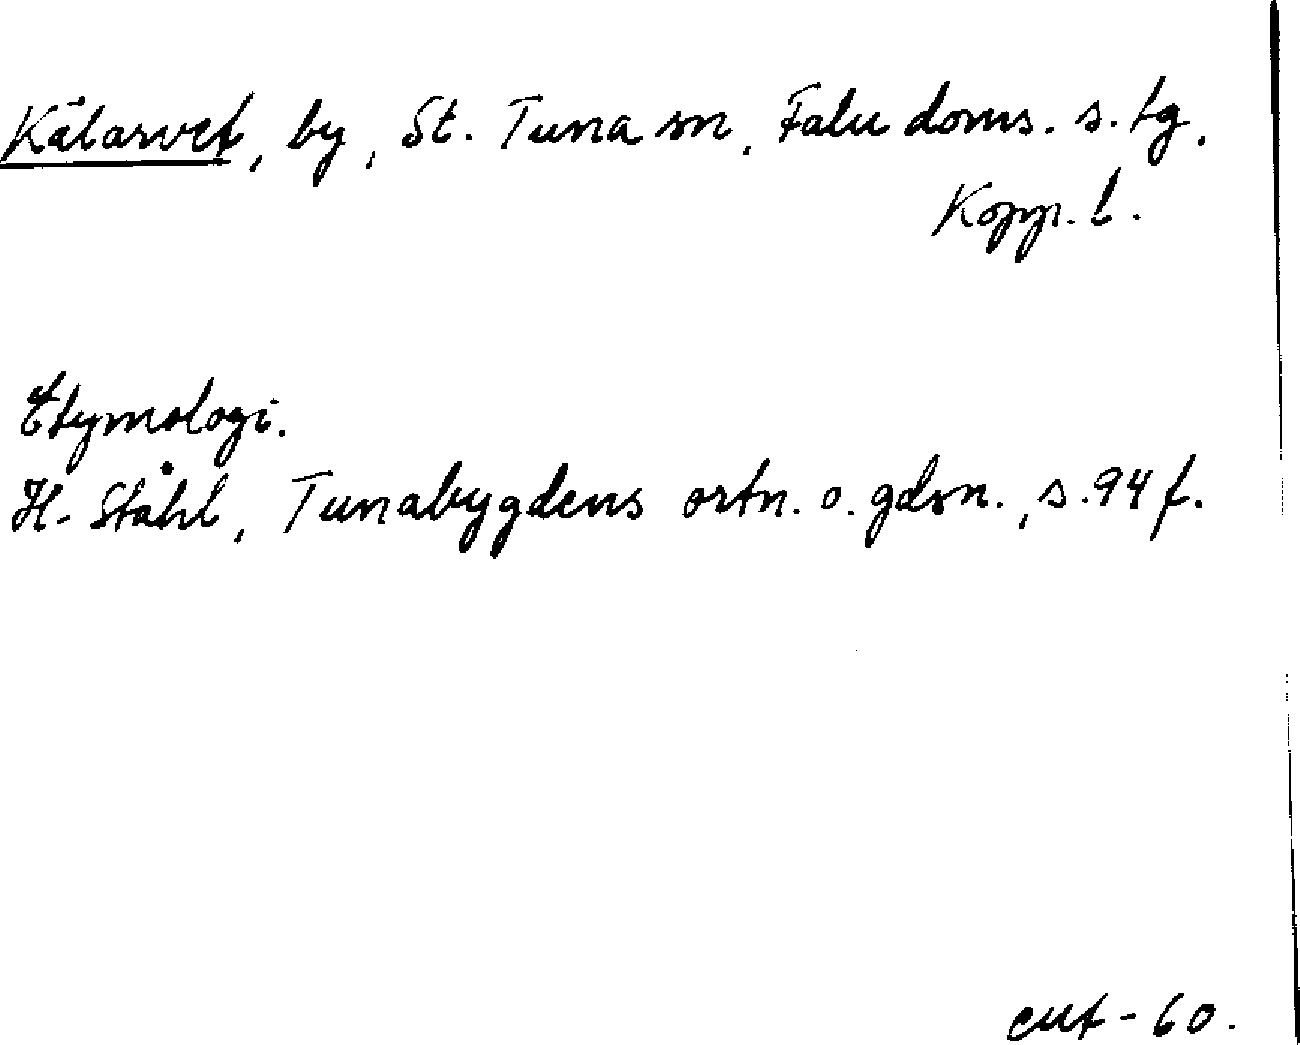 Kälarvet, by, St. Tuna sn, Falu doms. s. tg,
Kopp. l.
Etymologi.
H. Ståhl, Tunabygdens ortn. o. gdsn., s. 94 f.
- 60.